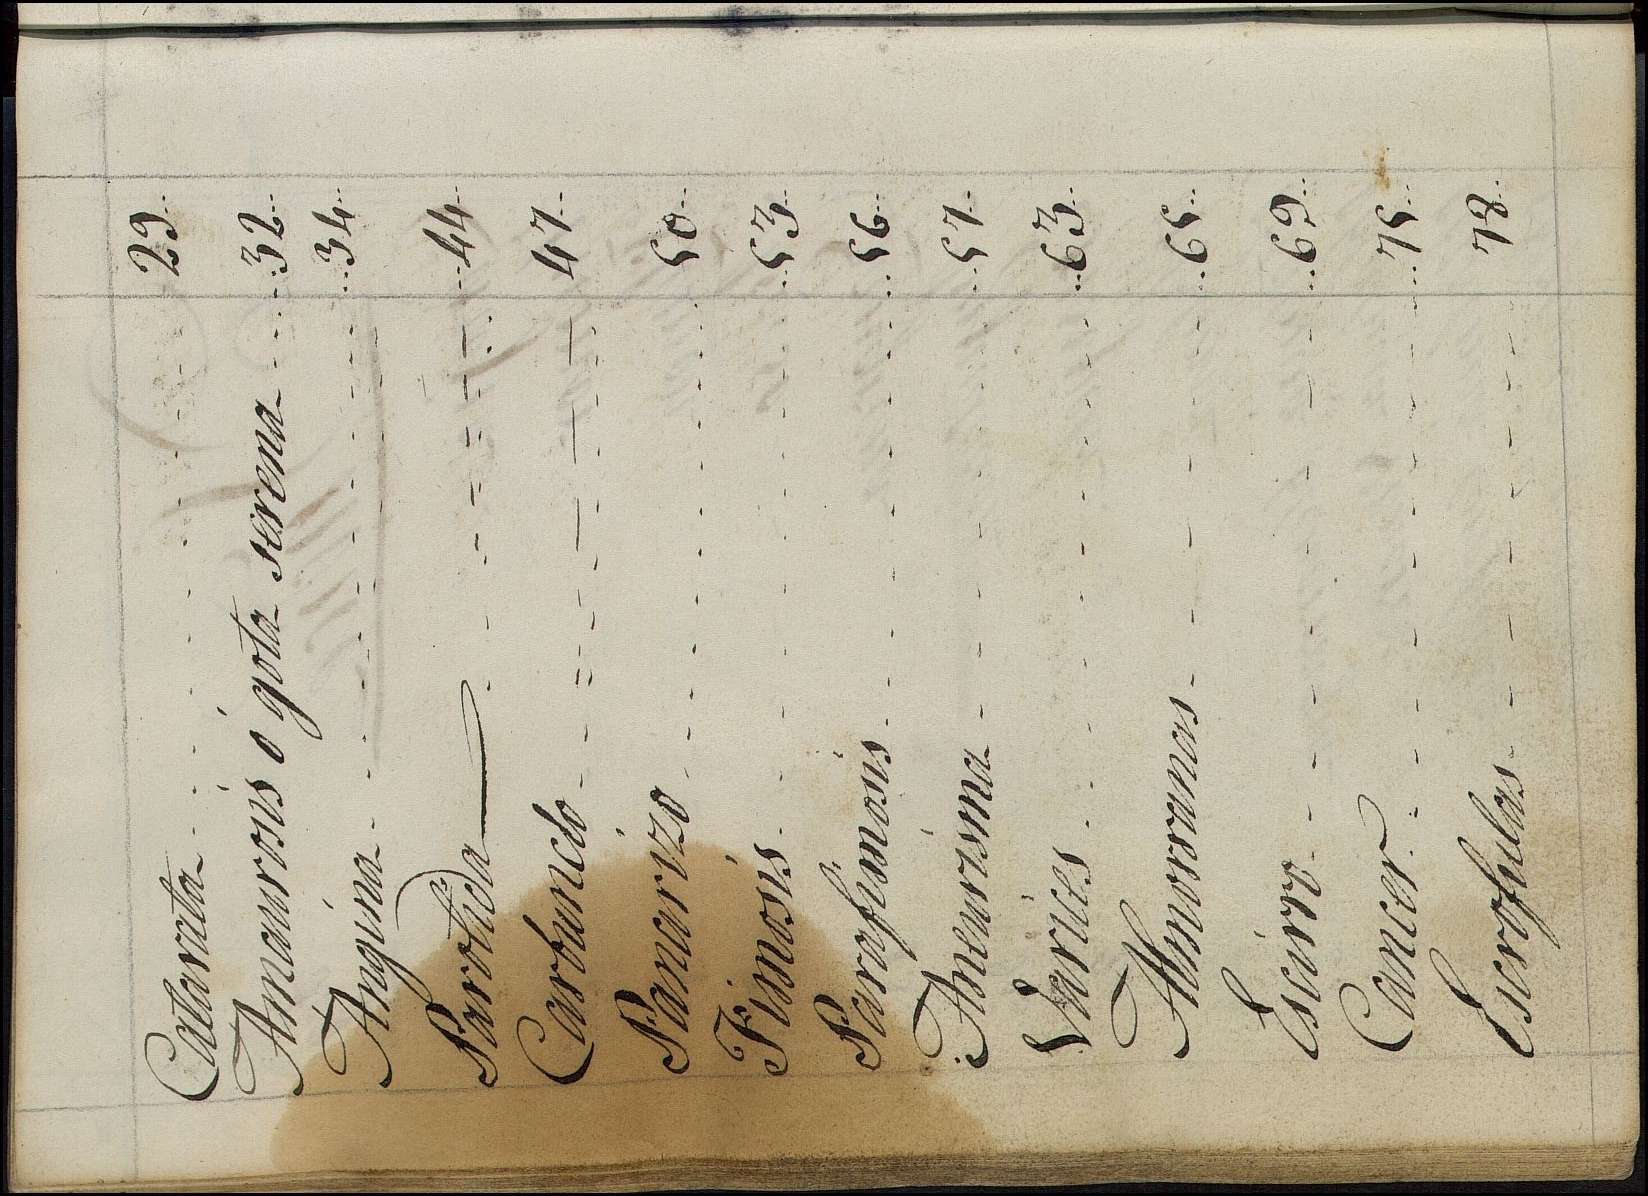 Catarata 29
Amaurosis ó gota serena 32
Angina 34
Parotida 44
Carbunclo 47
Panarizo 50
Fimosis 53
Parafimosis 56
Aneurisma 57
Varices 63
Almorranas 65
Escirro 69
Cancer 75
Escrofulas 78